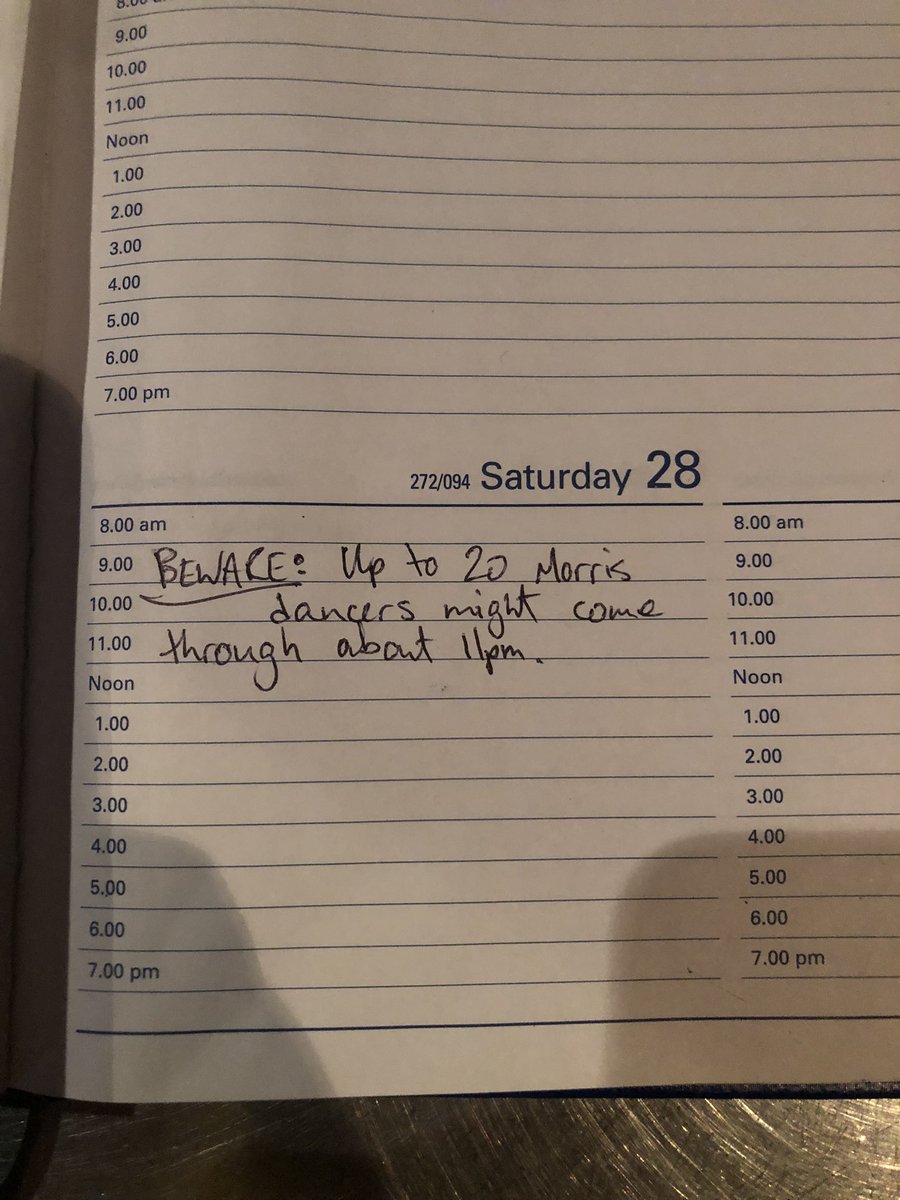 8.00 a
9.00
10.00
11.00
Noon
1.00
2.00
3.00
4.00
5.00
6.00
7.00 pm
272/094 Saturday 28
8.00 am
9.00 BEWARE: Up to 20 Morris
10.00 dancers might come
11.00 through about 11pm.
Noon
1.00
2.00
3.00
4.00
5.00
6.00
7.00 pm
8.00 am
9.00
10.00
11.00
Noon
1.00
2.00
3.00
4.00
5.00
6.00
7.00 pm